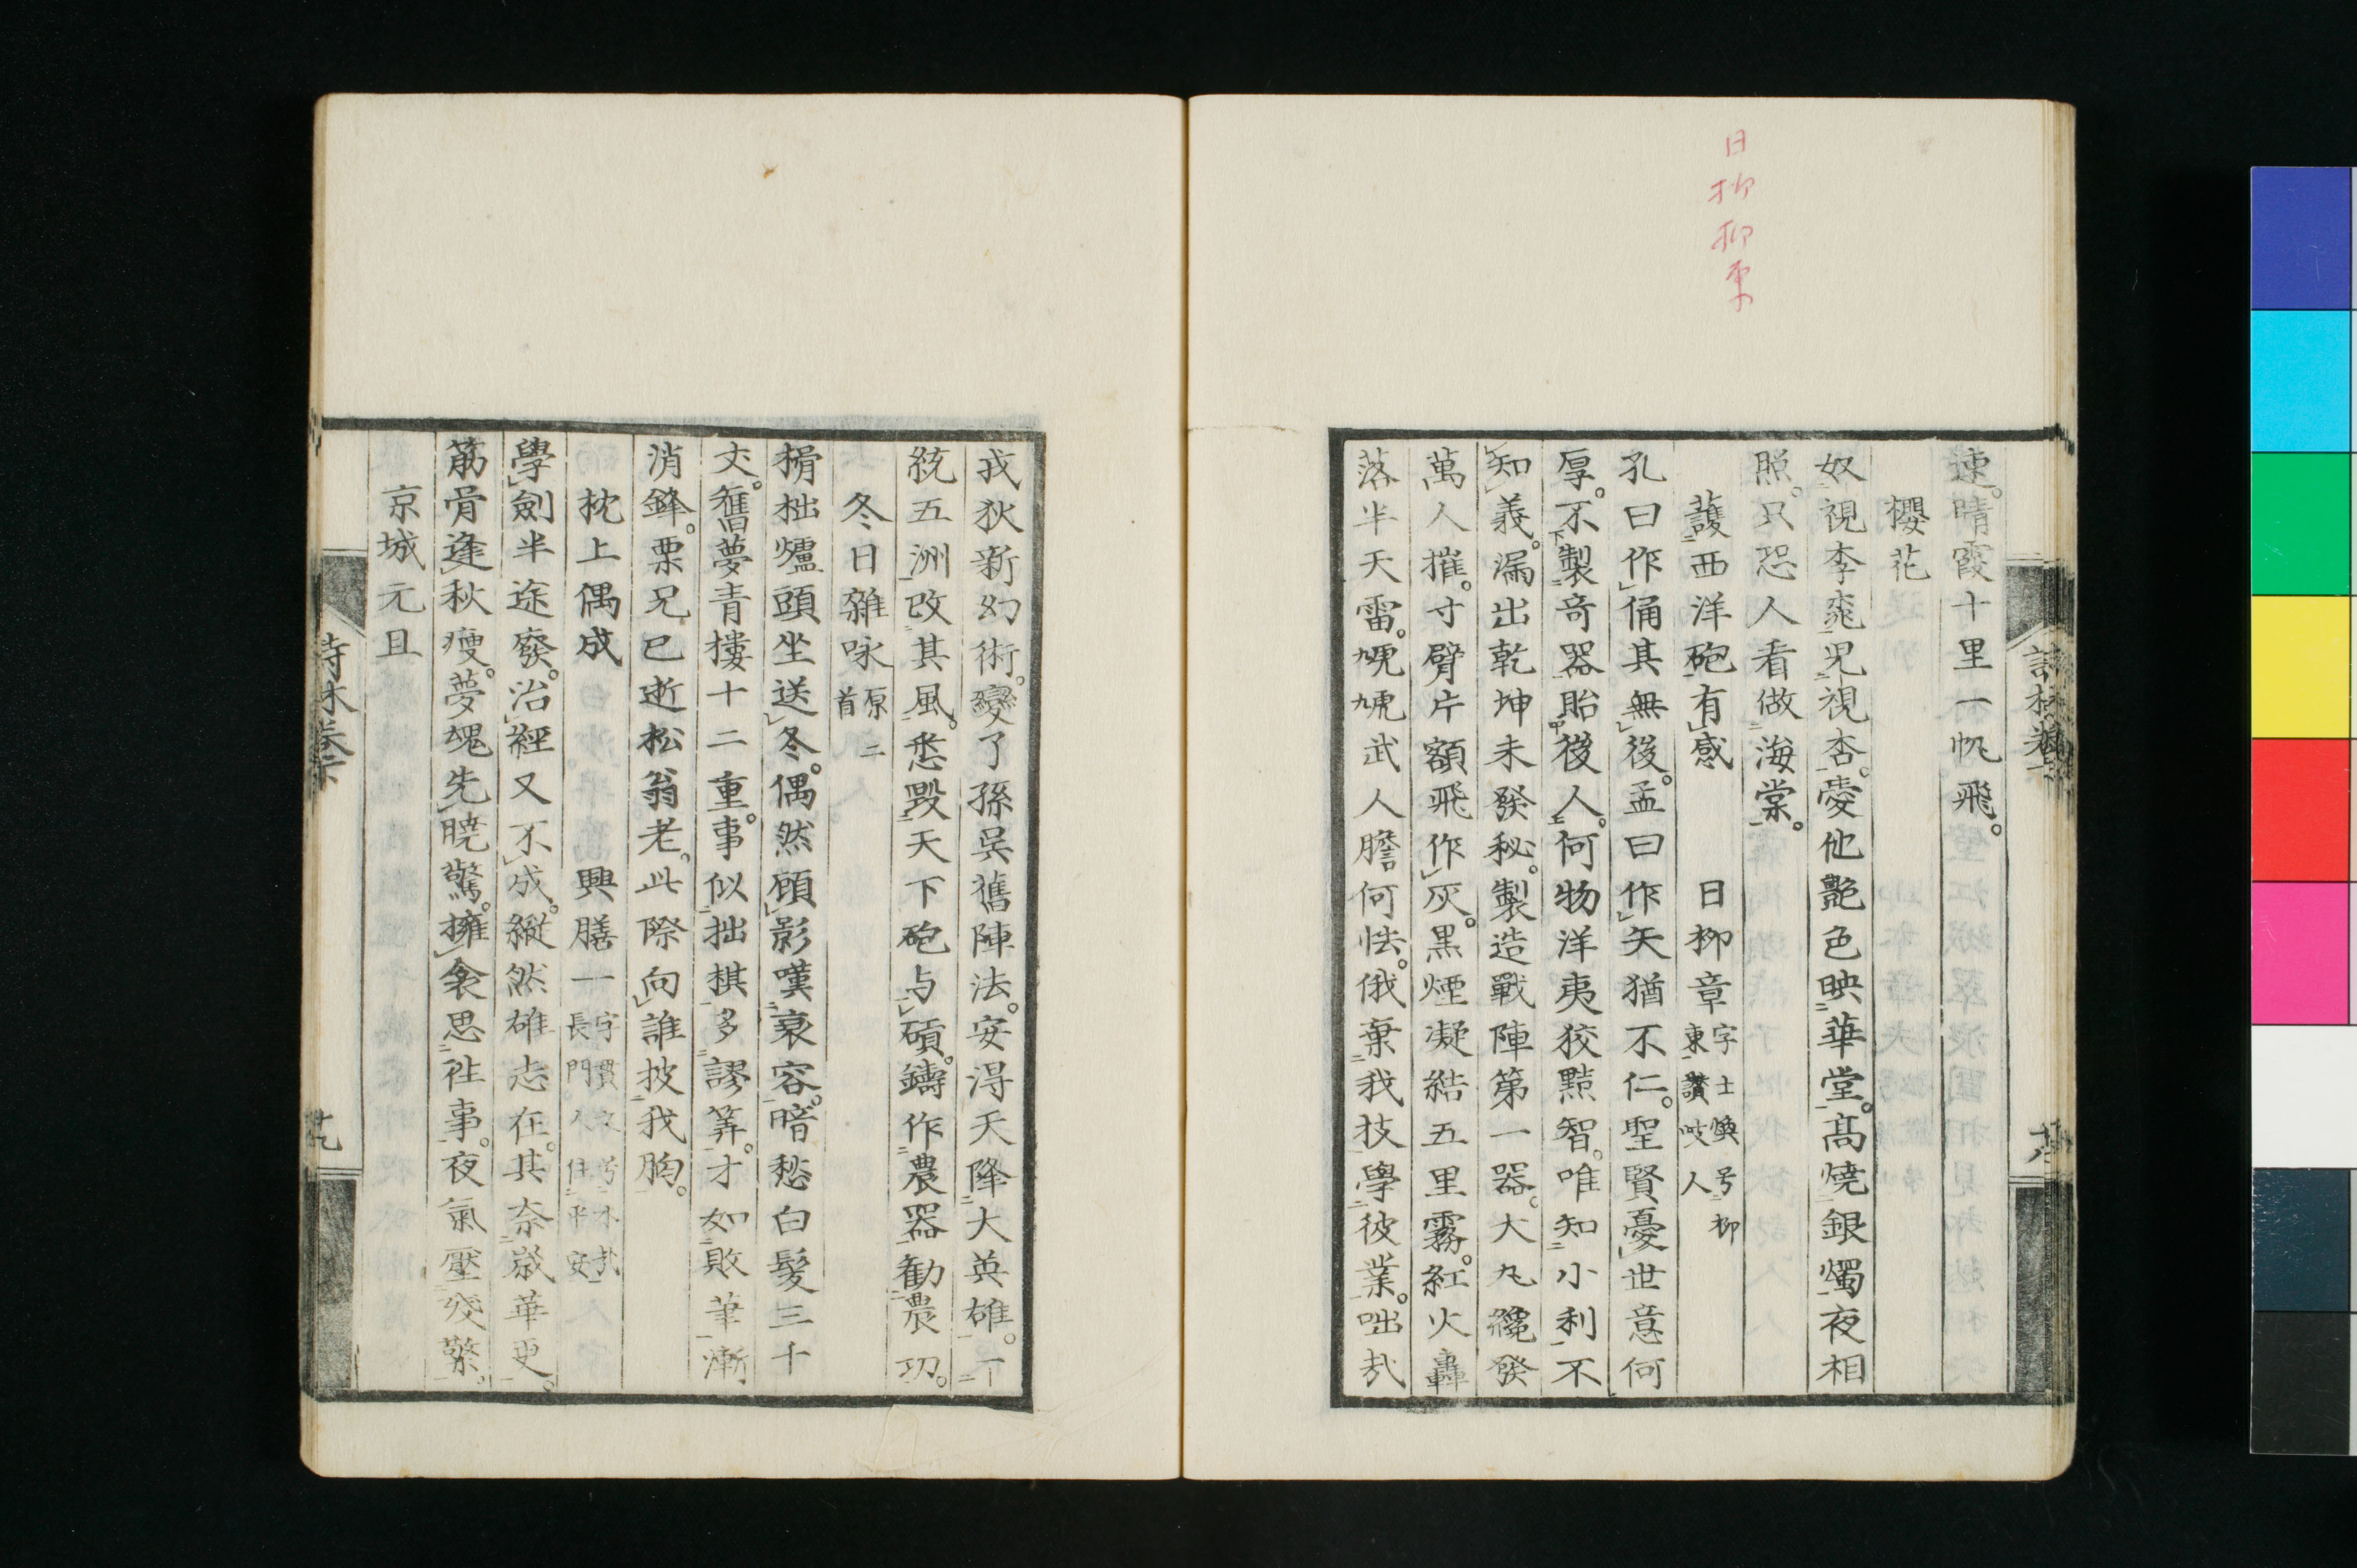 日柳柳東
速。晴霞十里一帆飛。
櫻花
奴視李桃兄視杏。愛他艷色映華堂。高燒銀燭夜相
照。只恐人看做海棠。
護西洋砲有感 日柳章 字士煥号柳東讃岐人
孔曰作俑其無後。孟曰作矢猶不仁。聖賢憂世意何
厚。不製奇器貽後人。何物洋夷狡黠智。唯知小利不
知義。漏出乾坤未發秘。製造戰陣第一器。大丸纔發
萬人摧。寸臂片額飛作灰。黑煙凝結五里霧。紅火轟
落半天雷。虩虩武人膽何怯。俄棄我技學彼業。咄哉
戎狄新幻術。變了孫吳舊陣法。安得天降大英雄。一
統五洲改其風。悉毀天下砲与碩。鑄作農器勸農功。
冬日雜咏 原二首
榾柮爐頭坐送冬。偶然顧影嘆衰容。暗愁白髮三千
丈。舊夢青樓十二重。事似拙棋多謬筭。才如敗筆漸
消鋒。栗兄已逝松翁老。此際向誰披我胸。
枕上偶成 興膳一
學劍半途廢。治經又不成。縱然雄志在。其奈歲華更。
筋骨逢秋瘦。夢魂先曉驚。擁衾思往事。夜氣壓殘檠。
京城元旦